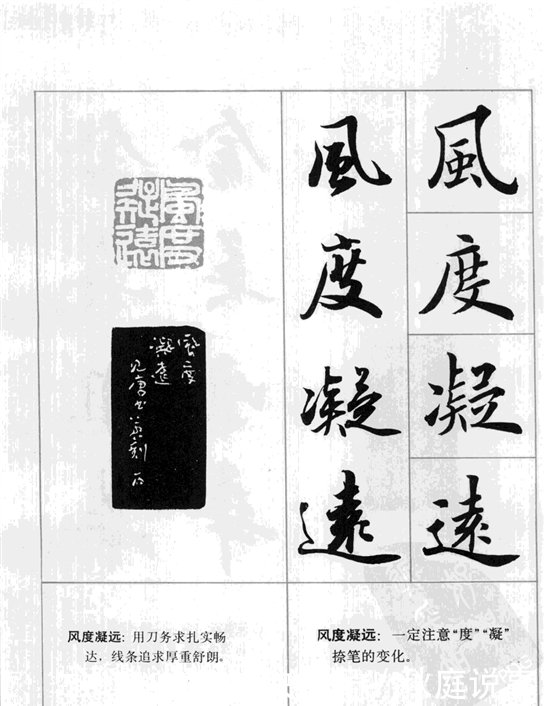 風度凝遠
風度凝遠
風度凝遠
風度
凝遠
风度凝远：用刀务求扎实畅
达，线条追求厚重舒朗。
风度凝远：一定注意“度”“凝”
捺笔的变化。
庭说